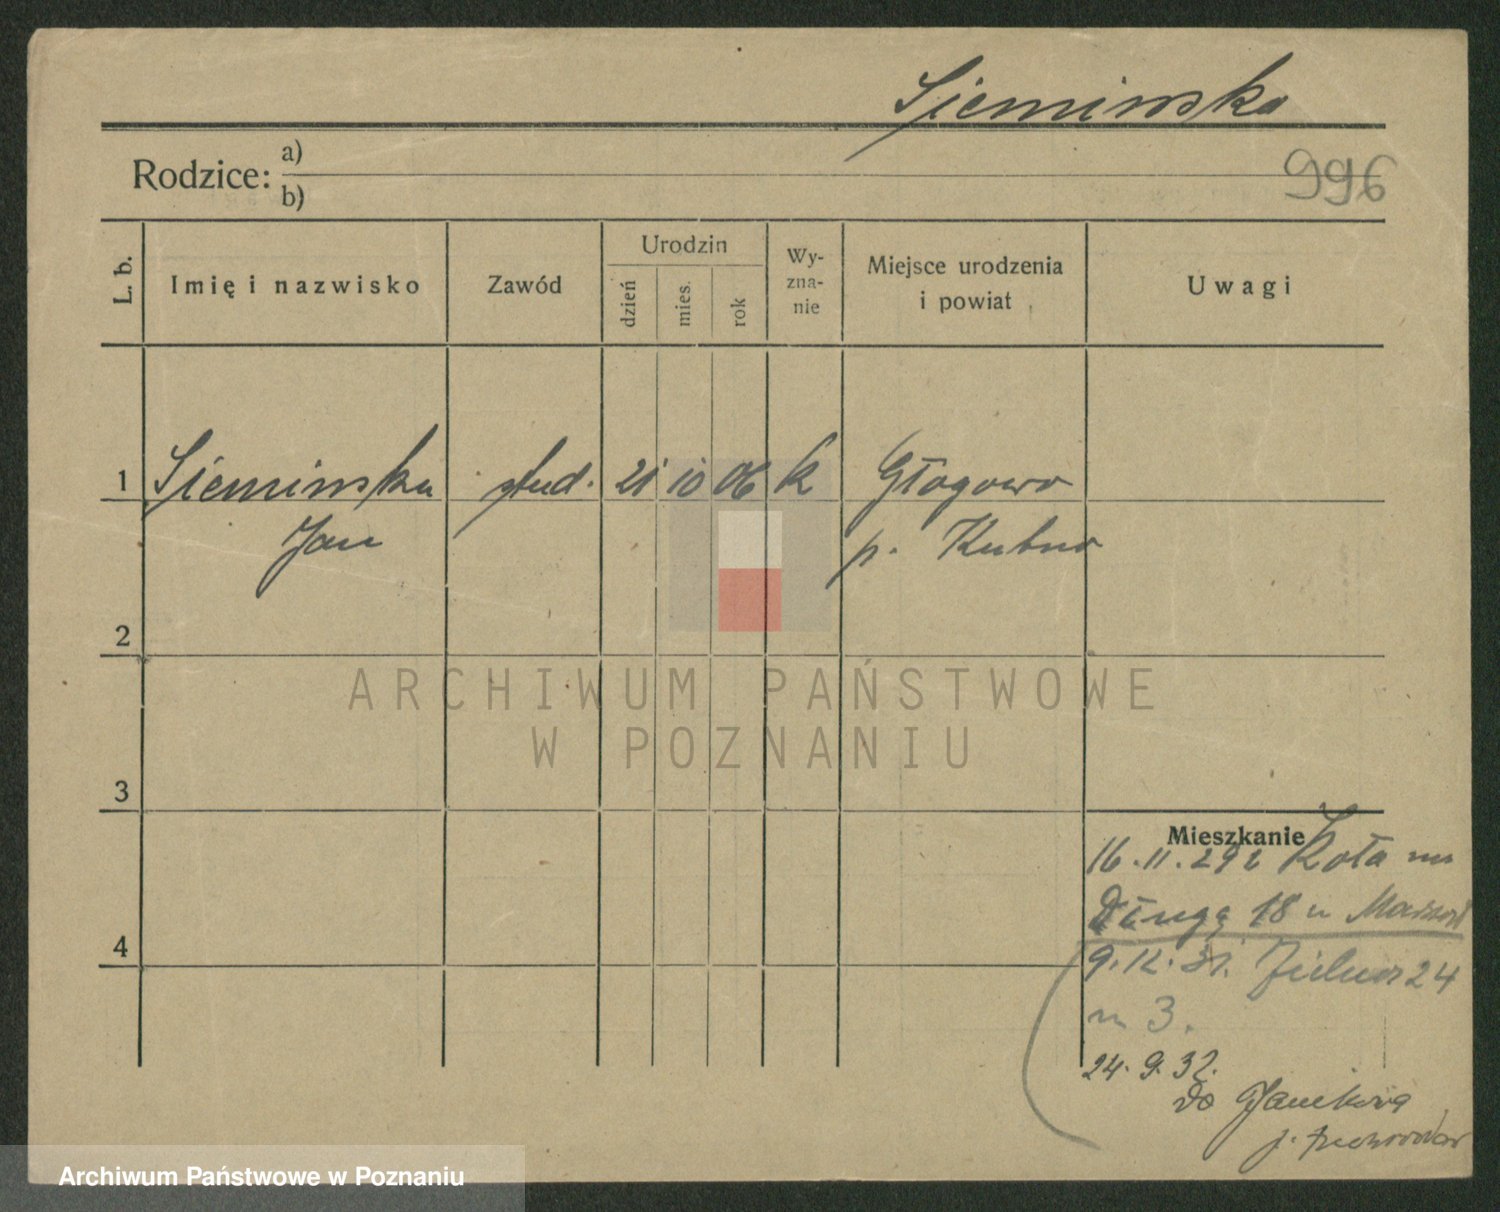 Sieminska
Rodzice: a)
b)
996
L. b.
Imię i nazwisko
Zawód
Urodzin
dzień
mies.
rok
Wy-
zna-
nie
Miejsce urodzenia
i powiat
Uwagi
1 Sieminska stud. 21 10 06 k Głogowo
Jan p. Kutno
2
ARCHIWUM PAŃSTWOWE
W POZNANIU
3
Mieszkanie
16.11.29 z Koła na
Długą 18 u
9.12.31. Zielna 24
m 3.
24.9.32.
do Janikowa
p.
4
Archiwum Państwowe w Poznaniu